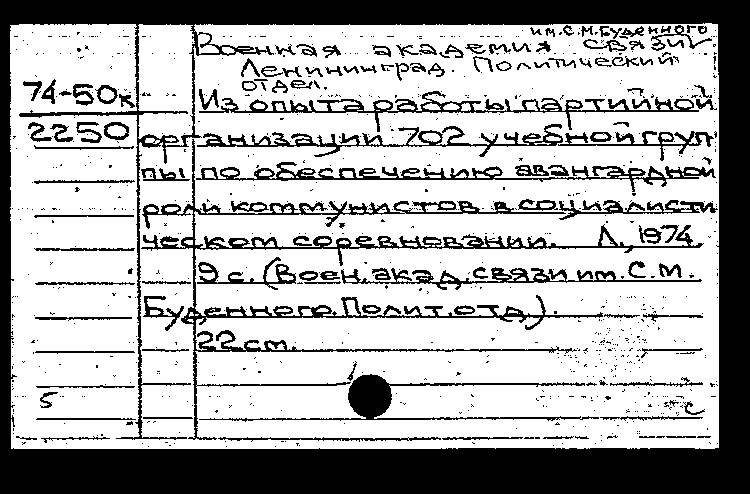 им. С. М. Буденного
Военная академия связи
Ленининград. Политический
отдел.
74-50к
2250
Из опыта работы партийной
организации 702 учебной груп
пы по обеспечению авангардной
роли коммунистов в социалисти
ческом соревновании. Л., 1974.
9 с. (Воен. акад. связи им. С. М.
Буденного. Полит. отд.).
22 см.
5
с